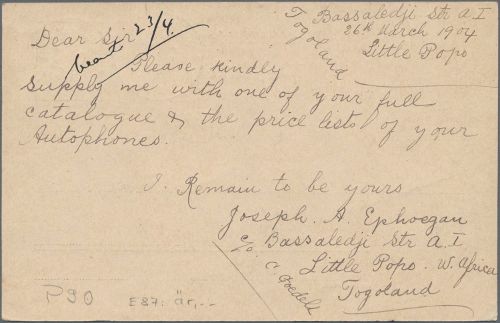 Bassaledji Str a. I
26th March 1904
Little Popo
Togoland
Dear Sir
beant 23/4.
Please kindly
Supply me with one of your full
catalogue & the price lists of your
Autophones.
I. Remain to be yours
Joseph. A. Ephoegan
c/o Bassaledji Str a. I
Little Popo. W. Africa
Togoland
P90
E87: är,--